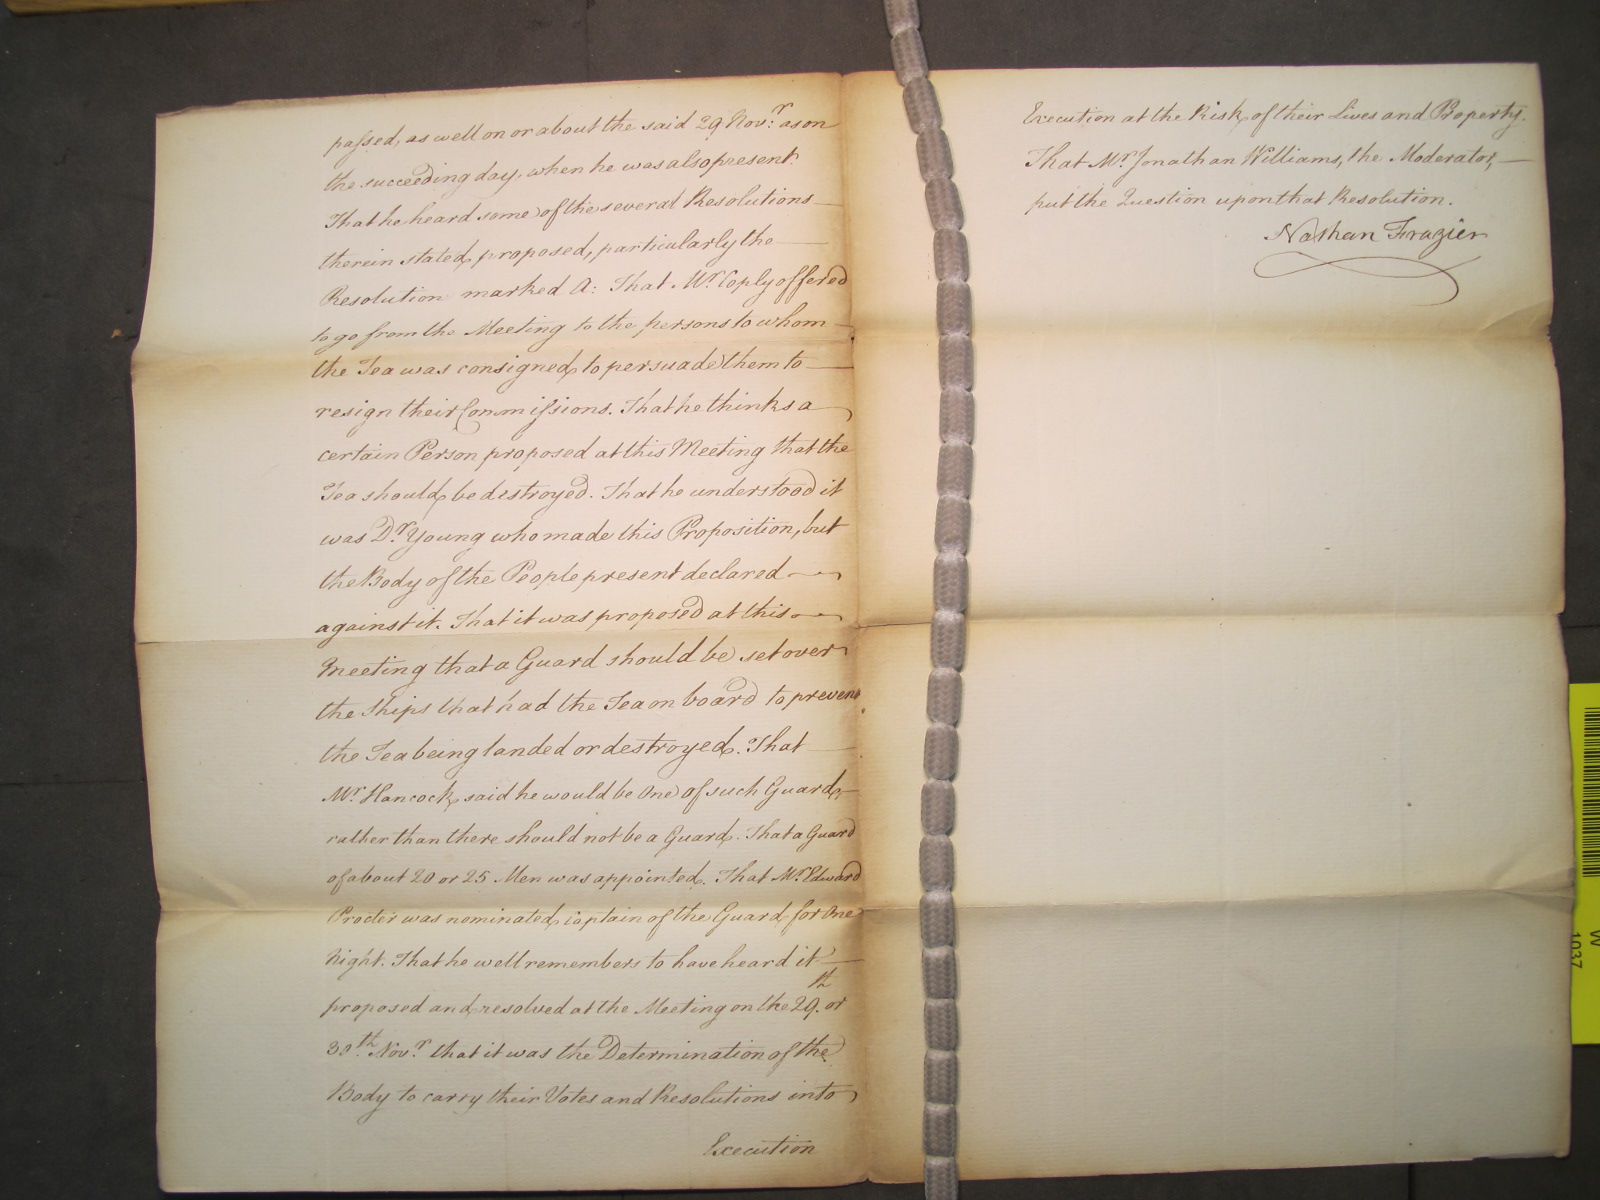 passed, as well on or about the said 29 Novr. as on
the succeeding day, when he was also present
That he heard some of the several Resolutions
therein stated, proposed, particularly the
Resolution marked A: That Mr. Coply offered
to go from the Meeting to the persons to whom
the Tea was consigned, to persuade them to
resign their Commissions. That he thinks a
certain Person proposed at this Meeting that the
Tea should be destroyed. That he understood it
was Dr. Young who made this Proposition, but
the Body of the People present declared
against it. That it was proposed at this
Meeting that a Guard should be set over
the Ships that had the Tea on board to prevent
the Tea being landed or destroyed. That
Mr. Hancock, said he would be One of such Guard,
rather than there should not be a Guard. That a Guard
of about 20 or 25 Men was appointed. That Mr. Edward
Procter was nominated Captain of the Guard for One
Night. That he well remembers to have heard it
proposed and resolved at the Meeting on the 29th. or
30th. Novr. that it was the Determination of the
Body to carry their Votes and Resolutions into
Execution
Execution at the Risk of their Lives and Property.
That Mr. Jonathan Williams, the Moderator,
put the Question upon that Resolution.
Nathan Frazier
1037
W